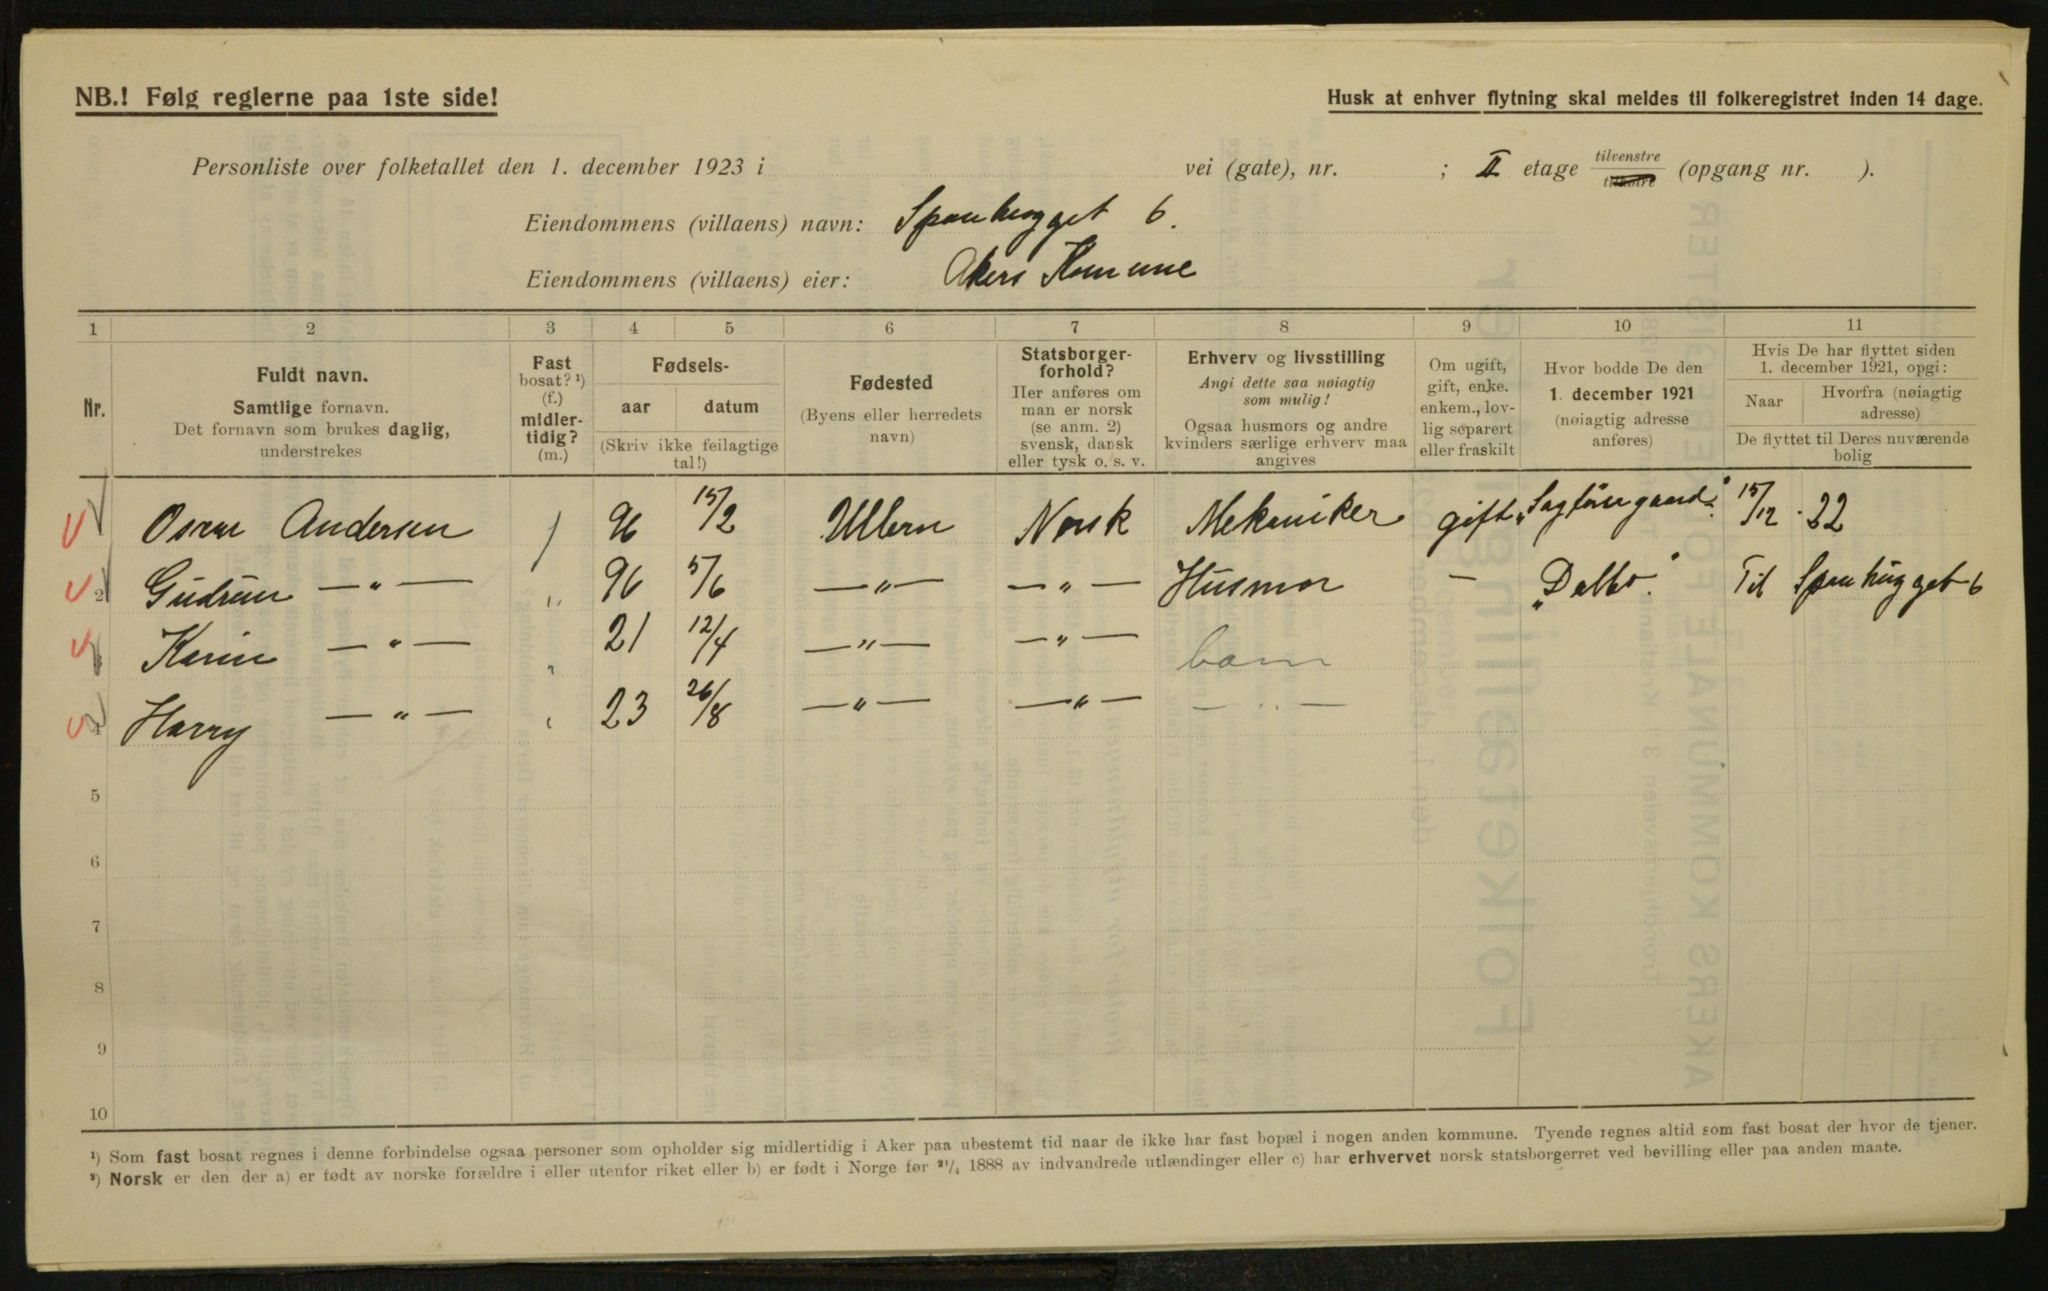 NB.! Følg reglerne paa 1ste side!
Husk at enhver flytning skal meldes til folkeregistret inden 14 dage.
Personliste over folketallet den 1. december 1923 i vei (gate), nr. ; II etage tilvenstre tilhøire (opgang nr. ).
Eiendommens (villaens) navn: Spanhugget 6.
Eiendommens (villaens) eier: Akers Komune
1 2 3 4 5 6 7 8 9 10 11
Nr.
Fuldt navn.
Samtlige fornavn.
Det fornavn som brukes daglig,
understrekes
Fast
bosat? ¹)
(f.)
midler-
tidig?
(m.)
Fødsels-
aar datum
(Skriv ikke feilagtige
tal!)
Fødested
(Byens eller herredets
navn)
Statsborger-
forhold?
Her anføres om
man er norsk
(se anm. 2)
svensk, dansk
eller tysk o. s. v.
Erhverv og livsstilling
Angi dette saa nøiagtig
som mulig!
Ogsaa husmors og andre
kvinders særlige erhverv maa
angives
Om ugift,
gift, enke.
enkem., lov-
lig separert
eller fraskilt
Hvor bodde De den
1. december 1921
(nøiagtig adresse
anføres)
Hvis De har flyttet siden
1. december 1921, opgi:
Naar
Hvorfra (nøiagtig
adresse)
De flyttet til Deres nuværende
bolig
Oscar Andersen / 96 15/2 Ullern Norsk Mekaniker gift 15/12 . 22
2 Gudrun — " — " 96 5/6 — " — — " — Husmor — "Dalbo". Til Spanhugget 6
Karin — " — " 21 12/4 — " — — " — barn
4 Harry — " — " 23 26/8 — " — — " — — " —
5
6
7
8
9
10
¹) Som fast bosat regnes i denne forbindelse ogsaa personer som opholder sig midlertidig i Aker paa ubestemt tid naar de ikke har fast bopæl i nogen anden kommune. Tyende regnes altid som fast bosat der hvor de tjener.
²) Norsk er den der a) er født av norske forældre i eller utenfor riket eller b) er født i Norge før ²¹/₄ 1888 av indvandrede utlændinger eller c) har erhvervet norsk statsborgerret ved bevilling eller paa anden maate.